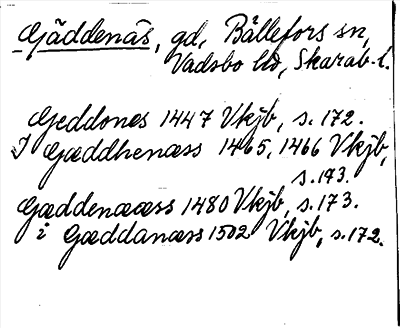 Gäddenäs, gd, Bällefors sn,
Vadsbo hd, Skarab. l.
Geddones 1447 Vkjb, s. 172.
I Gæddhenæss 1465, 1466 Vkjb,
s. 173.
Gæddenæss 1480 Vkjb, s. 173.
i Gæddanæss 1502 Vkjb, s. 172.